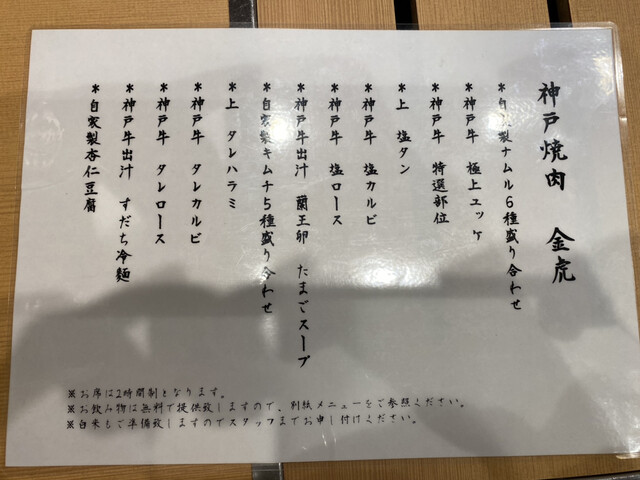 神戸焼肉 金虎
＊自家製ナムル6種盛り合わせ
＊神戸牛 極上ユッケ
＊神戸牛 特選部位
＊上 塩タン
＊神戸牛 塩カルビ
＊神戸牛 塩ロース
＊神戸牛出汁 蘭王卵 たまごスープ
＊自家製キムチ5種盛り合わせ
＊上 タレハラミ
＊神戸牛 タレカルビ
＊神戸牛 タレロース
＊神戸牛出汁 すだち冷麺
＊自家製杏仁豆腐
※お席は2時間制となります。
※お飲み物は無料で提供致しますので、別紙メニューをご参照ください。
※白米もご準備致しますのでスタッフまでお申し付けください。